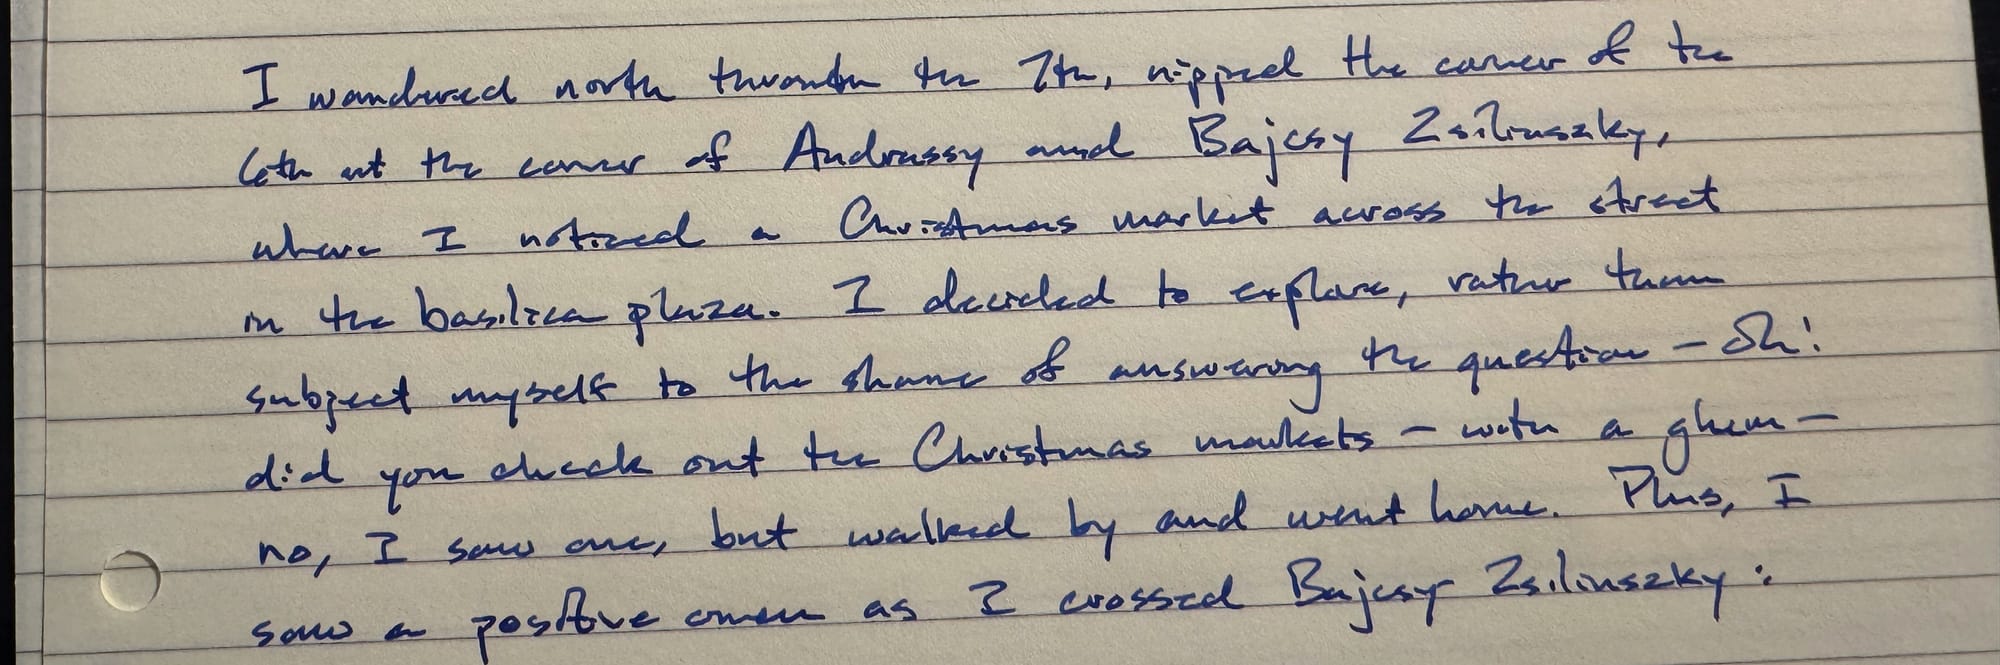 I wandered north through the 7th, nipped the corner of the
6th at the corner of Andrassy and Bajcsy Zsilinszky,
where I noticed a Christmas market across the street
in the basilica plaza. I decided to explore, rather than
subject myself to the shame of answering the question – Oh!
did you check out the Christmas markets – with a glum –
no, I saw one, but walked by and went home. Plus, I
saw a positive omen as I crossed Bajcsy Zsilinszky: